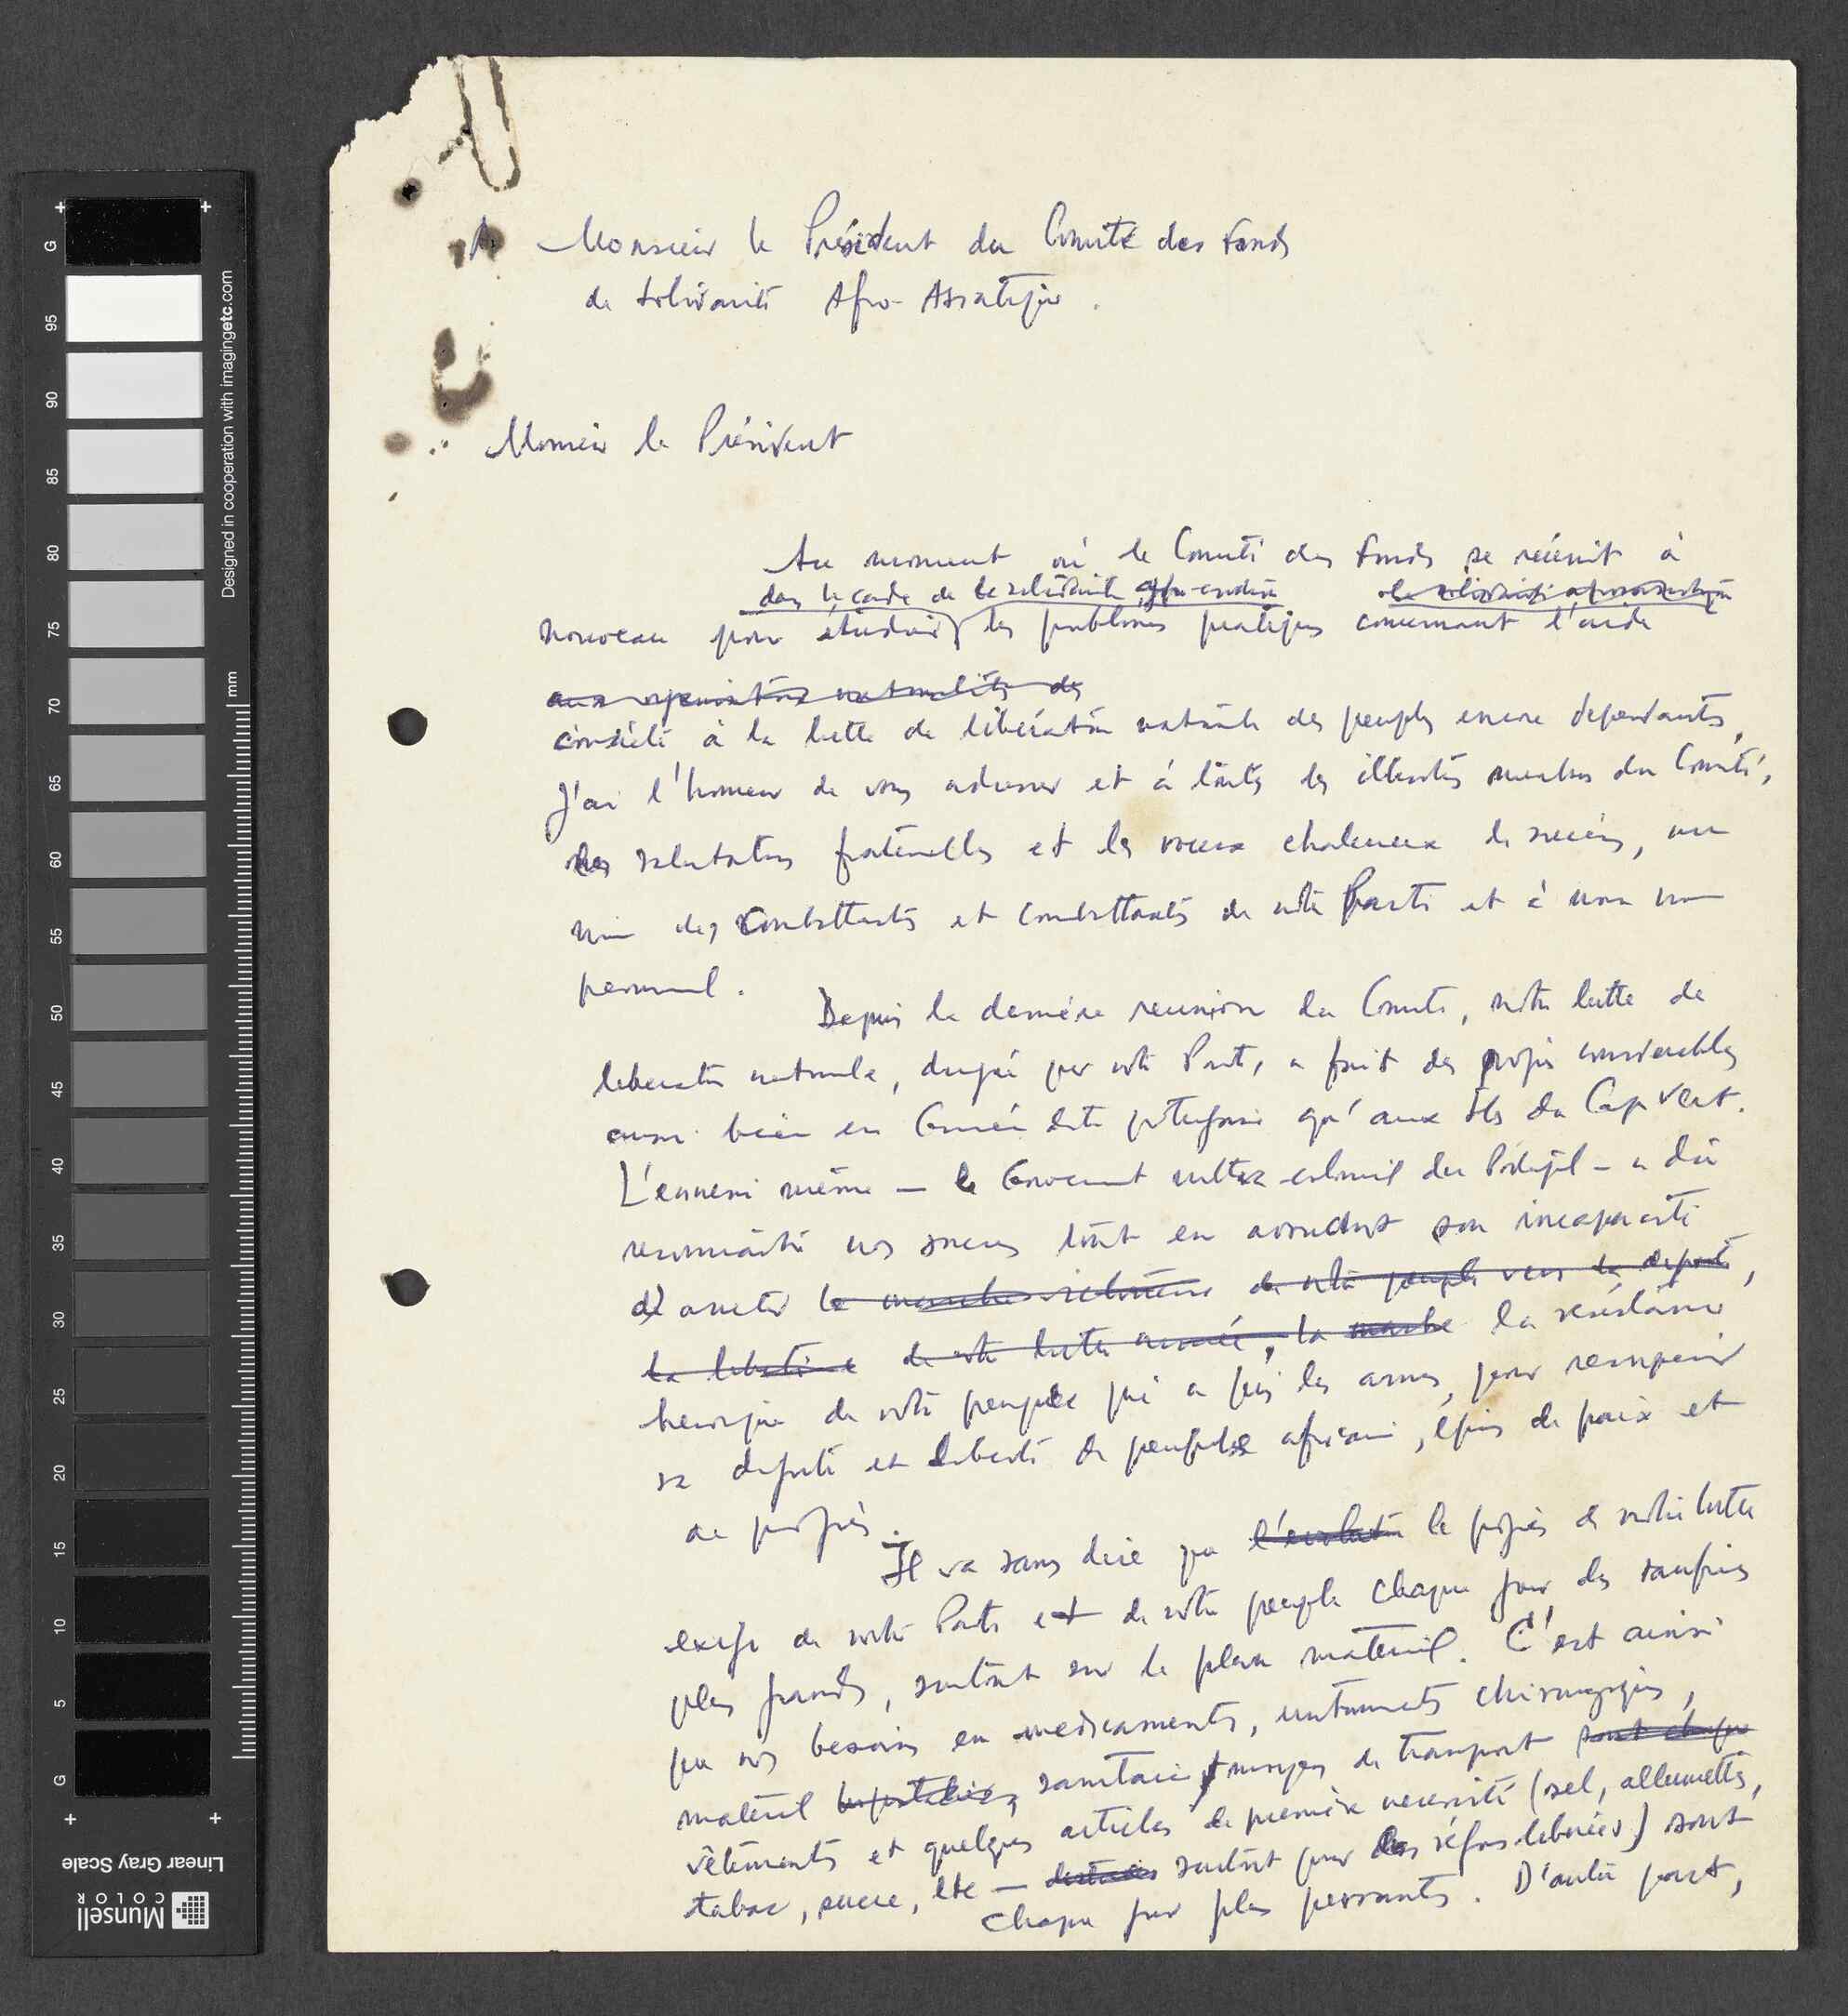 A Monsieur le Président du Comité des Fonds
de Solidarité Afro-Asiatique.
Monsieur le Président
Au moment où le Comité des Fonds se réunit à
dans le cadre de la solidarité afro-asiatique la solidarité afroasiatique
nouveau pour étudier les problèmes pratiques concernant l'aide
aux organisations nationalistes des
concrète à la lutte de libération nationale des peuples encore dépendants,
j'ai l'honneur de vous adresser et à toutes les illustres membres du Comité,
les salutations fraternelles et les voeux chaleureux de succès, au
nom des combattants et combattantes de notre Parti et à mon nom
personnel.
Depuis la dernière reunion du Comité, notre lutte de
liberation nationale, dirigée par notre Parti, a fait des progrès considerables
aussi bien en Guinée dite portugaise qu'aux îles du Cap Vert.
L'ennemi même — le Gouvernement ultra-colonial du Portugal — a dû
reconnaître nos succès tout en son incapacité
d'arreter la marche victorieuse de notre peuple vers la dignité,
la liberté de notre lutte armée, la marche la résistance
heroique de notre peuple qui a pris les armes, pour recuperer
sa dignité et liberté de peuple africain, épris de paix et
de progrès.
Il va sans dire que l'evolution le progrès de notre lutte
exige de notre Parti et de notre peuple chaque jour des sacrifices
plus grands, surtout sur le plan materiel. C'est ainsi
que nos besoins en medicaments, instruments chirurgiques,
matériel hospitalier, sanitaire, moyens de transport sont chaque
vêtements et quelques articles de première necessité (sel, allumettes,
tabac, sucre, etc — destinés surtout pour les régions liberées) sont
chaque jour plus pressants. D'autre part,
G
95
90
85
80
75
70
65
60
55
50
45
40
35
30
25
20
15
10
5
G
mm
Designed in cooperation with imagingetc.com
Linear Gray Scale
Munsell
COLOR